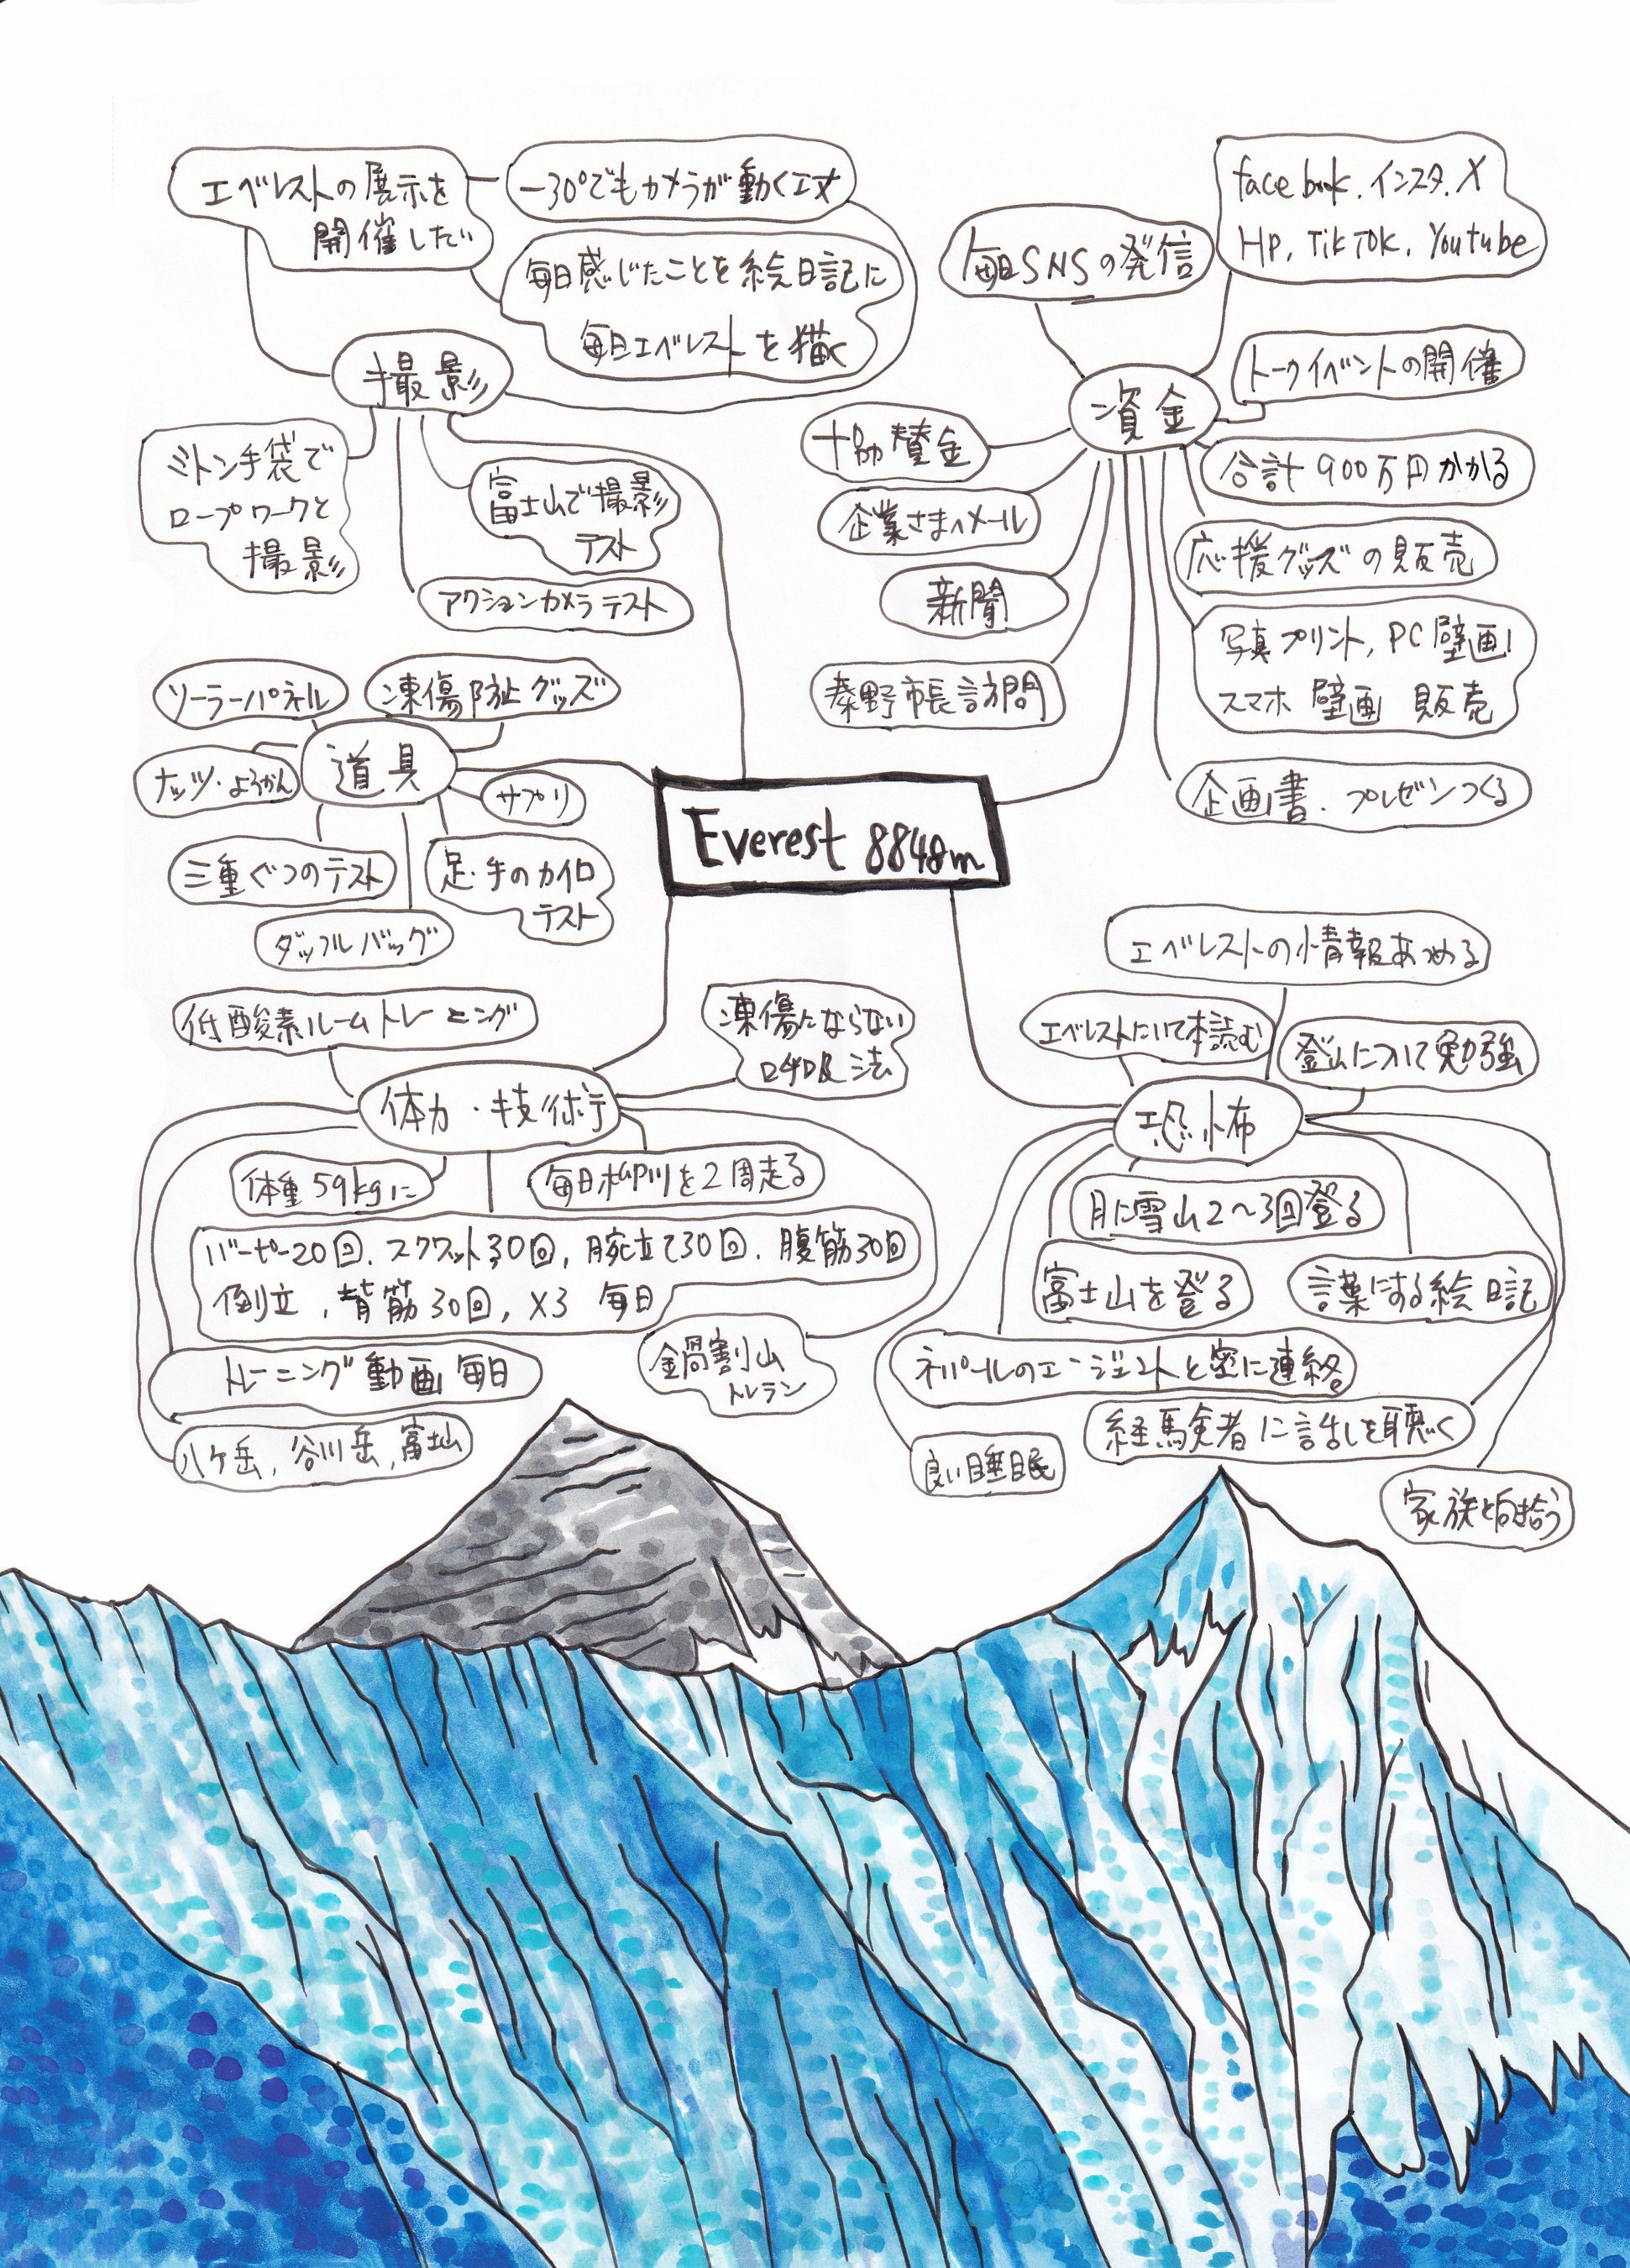 エベレストの展示を
開催したい
-30°でもカメラが動く工夫
毎日感じたことを絵日記に
毎日エベレストを描く
撮影
ミトン手袋で
ロープワークと
撮影
富士山で撮影
テスト
アクションカメラテスト
毎日SNSの発信
facebook.インスタ.X
HP, TikTOK. Youtube
資金
トークイベントの開催
協賛金
合計900万円かかる
企業さまへメール
応援グッズの販売
新聞
写真プリント, PC壁画
スマホ壁画 販売
秦野市長訪問
企画書.プレゼンつくる
ソーラーパネル
凍傷防止グッズ
道具
ナッツ・ようかん
サプリ
三重ぐつのテスト
足・手のカイロ
テスト
ダッフルバッグ
Everest 8848m
低酸素ルームトレーニング
凍傷にならない
呼吸法
体力・技術
体重59kgに
毎日柳川を2周走る
バーピー20回.スクワット30回,腕立て30回.腹筋30回
倒立,背筋30回, X3 毎日
トレーニング動画毎日
鍋割山
トレラン
八ヶ岳,谷川岳,富士山
エベレストの情報あつめる
エベレストについて本読む
登山について勉強
恐怖
月に雪山2〜3回登る
富士山を登る
言葉にする絵日記
ネパールのエージェントと密に連絡
経験者に話しを聴く
良い睡眠
家族と向き合う